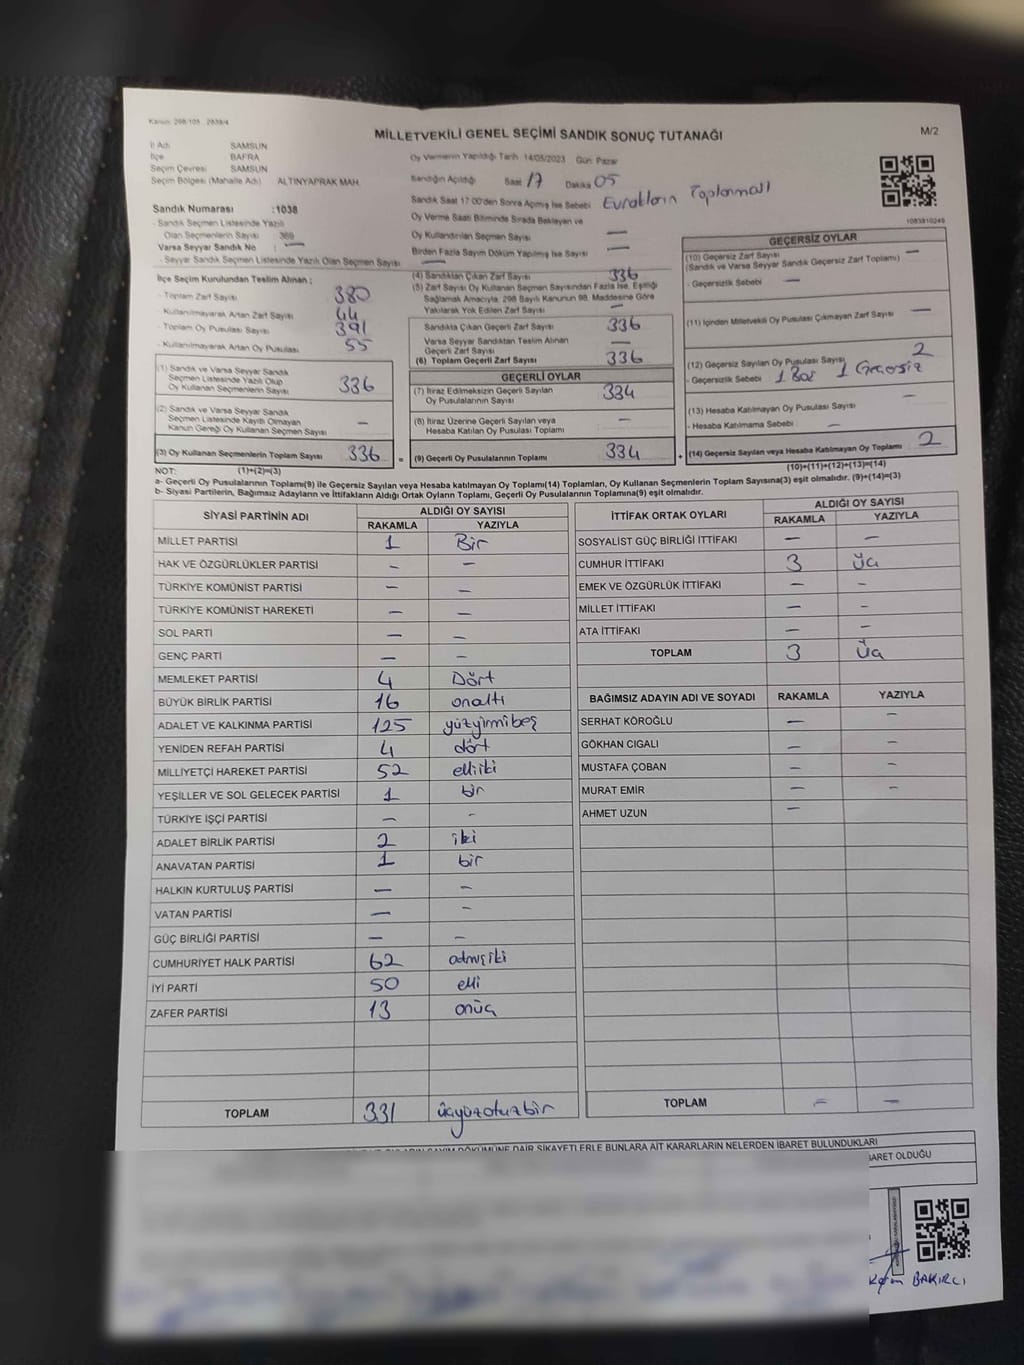 Kanun: 298/105 , 2839/4
MİLLETVEKİLİ GENEL SEÇİMİ SANDIK SONUÇ TUTANAĞI
M/2
İl Adı SAMSUN
İlçe BAFRA
Seçim Çevresi SAMSUN
Seçim Bölgesi (Mahalle Adı) ALTINYAPRAK MAH.
Oy Vermenin Yapıldığı Tarih 14/05/2023 Gün Pazar
Sandığın Açıldığı Saat 17 Dakika 05
Sandık Saat 17:00'den Sonra Açılmış İse Sebebi Evrakların Toplanması
Oy Verme Saati Bitiminde Sırada Bekleyen ve
Oy Kullandırılan Seçmen Sayısı —
Birden Fazla Sayım Döküm Yapılmış İse Sayısı —
1083810249
Sandık Numarası : 1038
- Sandık Seçmen Listesinde Yazılı
Olan Seçmenlerin Sayısı 369
Varsa Seyyar Sandık No : —
- Seyyar Sandık Seçmen Listesinde Yazılı Olan Seçmen Sayısı —
İlçe Seçim Kurulundan Teslim Alınan :
- Toplam Zarf Sayısı 380
- Kullanılmayarak Artan Zarf Sayısı 44
- Toplam Oy Pusulası Sayısı 391
- Kullanılmayarak Artan Oy Pusulası 55
(1) Sandık ve Varsa Seyyar Sandık
Seçmen Listesinde Yazılı Olup
Oy Kullanan Seçmenlerin Sayısı 336
(2) Sandık ve Varsa Seyyar Sandık
Seçmen Listesinde Kayıtlı Olmayan
Kanun Gereği Oy Kullanan Seçmen Sayısı —
(3) Oy Kullanan Seçmenlerin Toplam Sayısı 336 =
(4) Sandıktan Çıkan Zarf Sayısı 336
(5) Zarf Sayısı Oy Kullanan Seçmen Sayısından Fazla İse, Eşitliği
Sağlamak Amacıyla, 298 Sayılı Kanunun 98. Maddesine Göre
Yakılarak Yok Edilen Zarf Sayısı —
Sandıkta Çıkan Geçerli Zarf Sayısı 336
Varsa Seyyar Sandıktan Teslim Alınan
Geçerli Zarf Sayısı —
(6) Toplam Geçerli Zarf Sayısı 336
GEÇERLİ OYLAR
(7) İtiraz Edilmeksizin Geçerli Sayılan
Oy Pusulalarının Sayısı 334
(8) İtiraz Üzerine Geçerli Sayılan veya
Hesaba Katılan Oy Pusulası Toplamı —
(9) Geçerli Oy Pusulalarının Toplamı 334 +
GEÇERSİZ OYLAR
(10) Geçersiz Zarf Sayısı —
(Sandık ve Varsa Seyyar Sandık Geçersiz Zarf Toplamı)
- Geçersizlik Sebebi —
(11) İçinden Milletvekili Oy Pusulası Çıkmayan Zarf Sayısı —
(12) Geçersiz Sayılan Oy Pusulası Sayısı 2
- Geçersizlik Sebebi 1 Boş 1 Geçersiz
(13) Hesaba Katılmayan Oy Pusulası Sayısı —
- Hesaba Katılmama Sebebi —
(14) Geçersiz Sayılan veya Hesaba Katılmayan Oy Toplamı 2
NOT: (1)+(2)=(3) (10)+(11)+(12)+(13)=(14)
a- Geçerli Oy Pusulalarının Toplamı(9) ile Geçersiz Sayılan veya Hesaba katılmayan Oy Toplamı(14) Toplamları, Oy Kullanan Seçmenlerin Toplam Sayısına(3) eşit olmalıdır. (9)+(14)=(3)
b- Siyasi Partilerin, Bağımsız Adayların ve İttifakların Aldığı Ortak Oyların Toplamı, Geçerli Oy Pusulalarının Toplamına(9) eşit olmalıdır.
SİYASİ PARTİNİN ADI ALDIĞI OY SAYISI
RAKAMLA YAZIYLA
MİLLET PARTİSİ 1 Bir
HAK VE ÖZGÜRLÜKLER PARTİSİ — —
TÜRKİYE KOMÜNİST PARTİSİ — —
TÜRKİYE KOMÜNİST HAREKETİ — —
SOL PARTİ — —
GENÇ PARTİ — —
MEMLEKET PARTİSİ 4 Dört
BÜYÜK BİRLİK PARTİSİ 16 onaltı
ADALET VE KALKINMA PARTİSİ 125 yüzyirmibeş
YENİDEN REFAH PARTİSİ 4 dört
MİLLİYETÇİ HAREKET PARTİSİ 52 elliiki
YEŞİLLER VE SOL GELECEK PARTİSİ 1 bir
TÜRKİYE İŞÇİ PARTİSİ — —
ADALET BİRLİK PARTİSİ 2 iki
ANAVATAN PARTİSİ 1 bir
HALKIN KURTULUŞ PARTİSİ — —
VATAN PARTİSİ — —
GÜÇ BİRLİĞİ PARTİSİ — —
CUMHURİYET HALK PARTİSİ 62 atmışiki
İYİ PARTİ 50 elli
ZAFER PARTİSİ 13 onüç
TOPLAM 331 üçyüzotuzbir
İTTİFAK ORTAK OYLARI ALDIĞI OY SAYISI
RAKAMLA YAZIYLA
SOSYALİST GÜÇ BİRLİĞİ İTTİFAKI — —
CUMHUR İTTİFAKI 3 üç
EMEK VE ÖZGÜRLÜK İTTİFAKI — —
MİLLET İTTİFAKI — —
ATA İTTİFAKI — —
TOPLAM 3 üç
BAĞIMSIZ ADAYIN ADI VE SOYADI RAKAMLA YAZIYLA
SERHAT KÖROĞLU — —
GÖKHAN CIGALI — —
MUSTAFA ÇOBAN — —
MURAT EMİR — —
AHMET UZUN —
TOPLAM — —
DÖKÜMÜNE DAİR ŞİKAYETLERLE BUNLARA AİT KARARLARIN NELERDEN İBARET BULUNDUKLARI
İBARET OLDUĞU
BAKIRCI